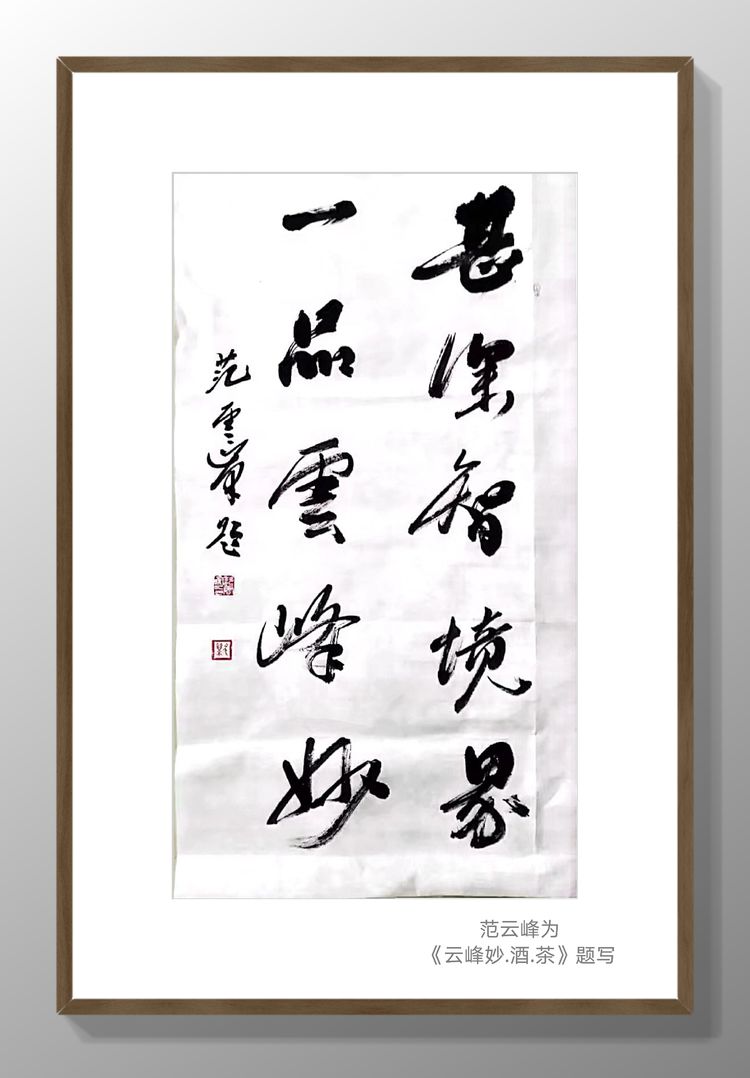 甚深智境界
一品雲峰妙
范雲峯题
范云峰为
《云峰妙.酒.茶》题写